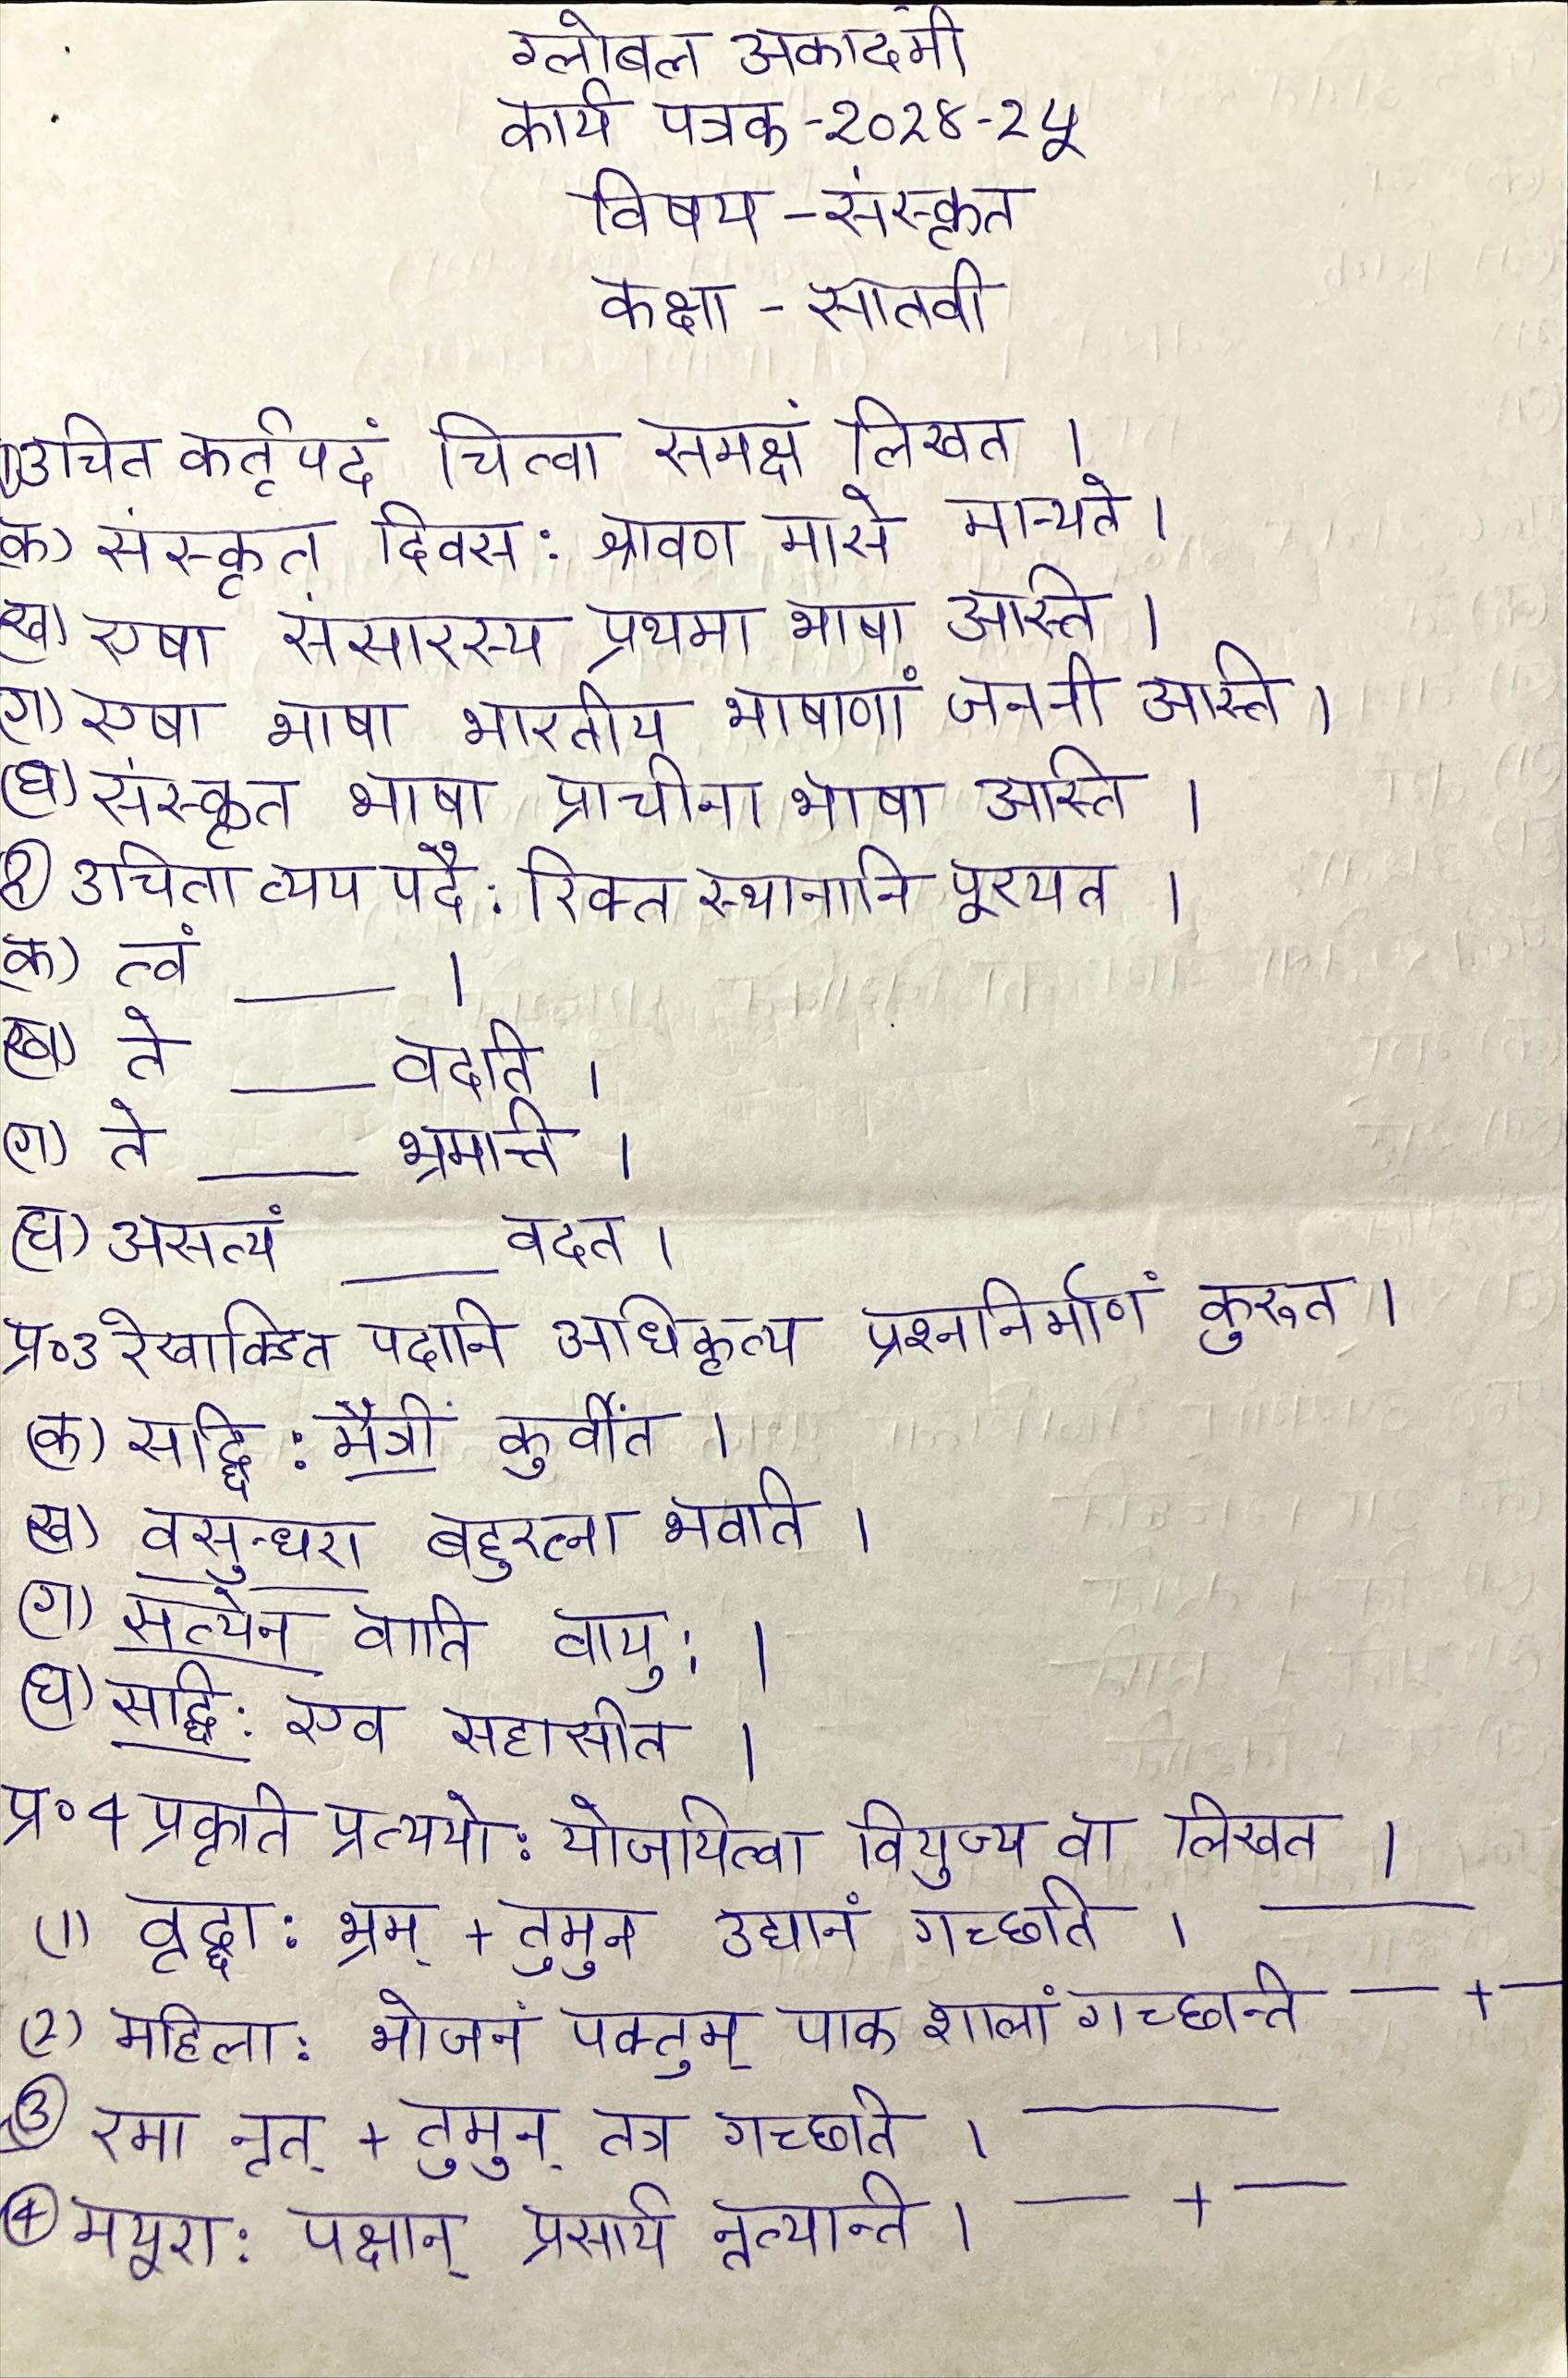 ग्लोबल अकादमी
कार्य पत्रक -२०२४-२५
विषय - संस्कृत
कक्षा - सातवी
1) उचित कर्तृपदं चित्वा समक्षं लिखत ।
क) संस्कृत दिवस: श्रावण मासे मान्यते ।
ख) एषा संसारस्य प्रथमा भाषा अस्ति ।
ग) एषा भाषा भारतीय भाषाणां जननी अस्ति ।
(घ) संस्कृत भाषा प्राचीना भाषा अस्ति ।
२) उचिताव्यय पदै: रिक्त स्थानानि पूरयत ।
क) त्वं ____ ।
(ख) ते ____ वदति ।
(ग) ते ____ भ्रमन्ति ।
(घ) असत्यं ____ वदत ।
प्र०3 रेखाङ्कित पदानि अधिकृत्य प्रश्ननिर्माणं कुरुत ।
(क) सद्भि: मैत्रीं कुर्वीत ।
(ख) वसुन्धरा बहुरत्ना भवति ।
(ग) सत्येन वाति वायु: ।
(घ) सद्भि: एव सहासीत ।
प्र०4 प्रकृति प्रत्ययो: योजयित्वा वियुज्य वा लिखत ।
(1) वृद्धा: भ्रम् + तुमुन उद्यानं गच्छति । ____
(2) महिला: भोजनं पक्तुम् पाक शालां गच्छन्ति __ + __
3) रमा नृत् + तुमुन् तत्र गच्छति । ____
4) मयूरा: पक्षान् प्रसार्य नृत्यन्ति । __ + __